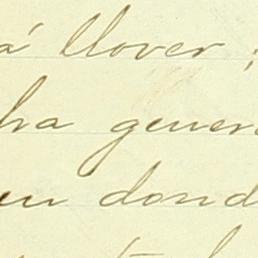 á llover;
ha gener
en dond